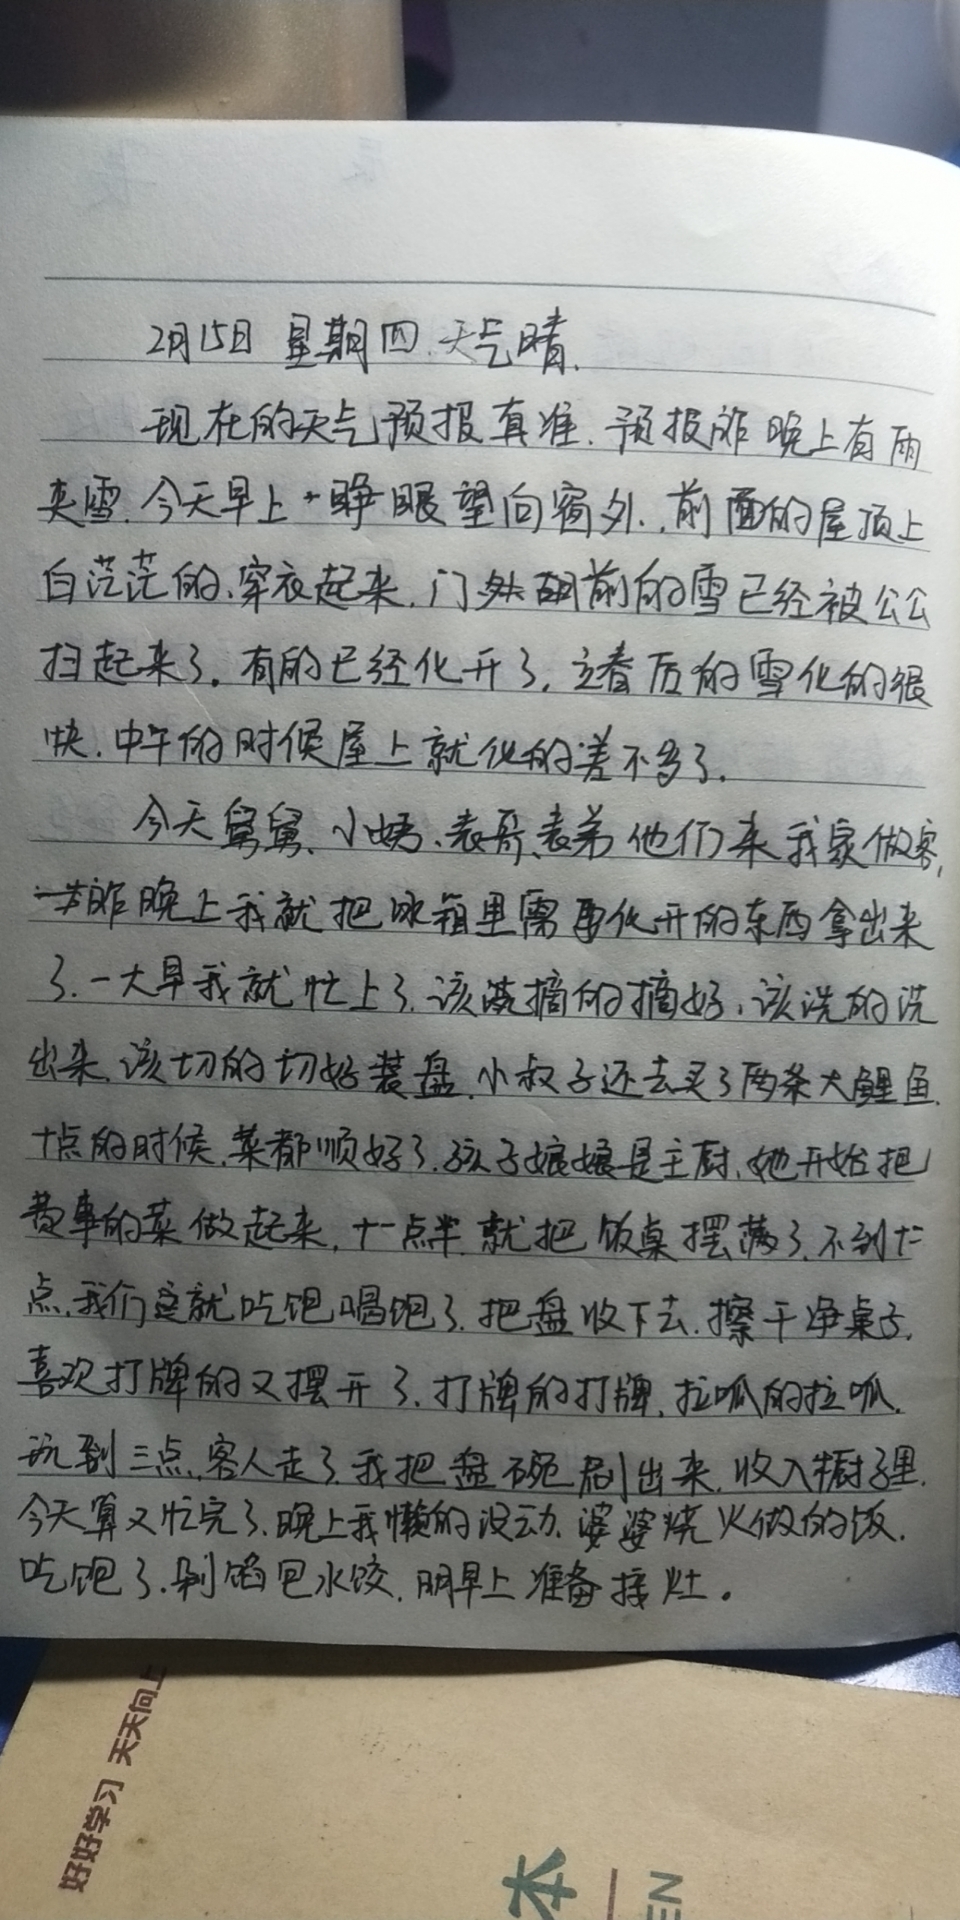 2月15日 星期四.天气晴.
现在的天气预报真准.预报昨晚上有雨
夹雪.今天早上一睁眼望向窗外,前面的屋顶上
白茫茫的.穿衣起来.门前的雪已经被公公
扫起来了。有的已经化开了.立春后的雪化的很
快.中午的时候屋上就化的差不多了.
今天舅舅、小姨、表哥、表弟他们来我家做客,
昨晚上我就把冰箱里需要化开的东西拿出来
了.一大早我就忙上了.该摘的摘好.该洗的洗
出来.该切的切好装盘.小叔子还去买了两条大鲤鱼.
十点的时候.菜都顺好了.孩子娘娘是主厨.她开始把
费事的菜做起来.十一点半就把饭桌摆满了.不到十二
点.我们这就吃饱喝饱了.把盘收下去.擦干净桌子.
喜欢打牌的又摆开了.打牌的打牌.拉呱的拉呱.
玩到三点.客人走了.我把盘碗刷出来.收入橱子里.
今天算又忙完了.晚上我懒的没动.婆婆烧火做的饭.
吃饱了.剁馅包水饺.明早上准备接灶。
好好学习 天天向上
本
EN